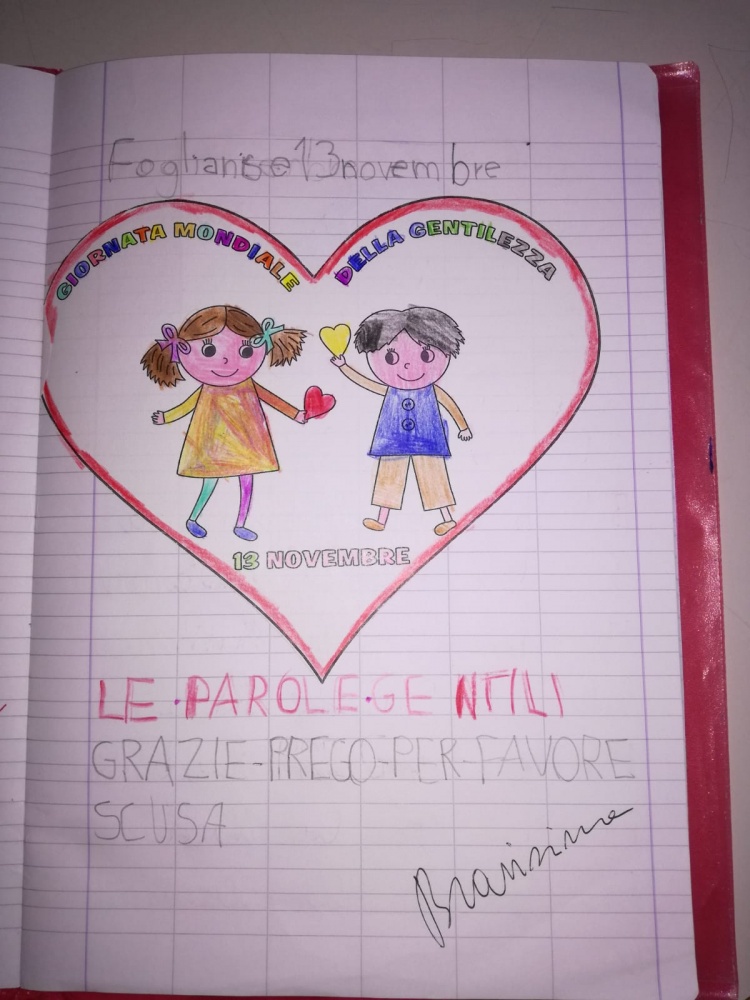 Foglianise 13 novembre
GIORNATA MONDIALE DELLA GENTILEZZA
13 NOVEMBRE
LE·PAROLE·GENTILI
GRAZIE-PREGO-PER-FAVORE
SCUSA
Bravissima